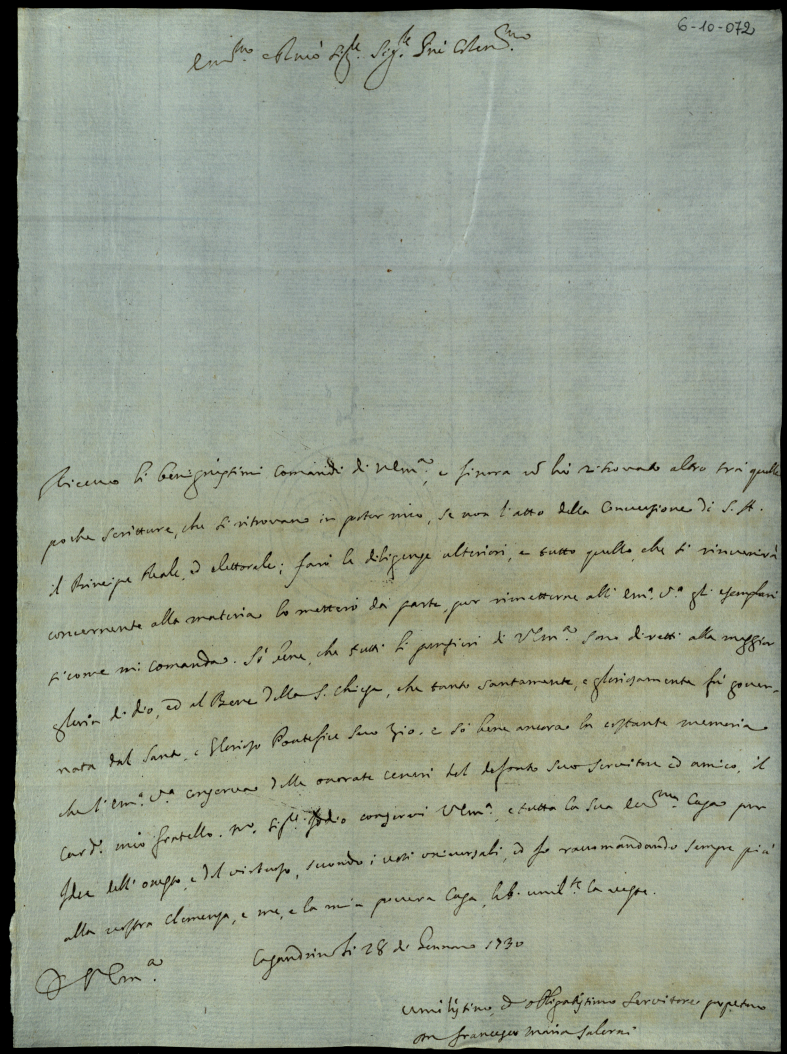 6-10-072
Em.mo e Rmo Sig.re Sig.re Pne Colen.mo
Ricevo li benignissimi comandi di V Em.a, e finora nō hò ritrovato altro trà quelle
poche scritture, che si ritrovano in poter mio, se non l'atto della Conversione di S. A.
il Principe Reale, ed elettorale; farò le diligenze ulteriori, e tutto quello, che si rinvenirà
concernente alla materia lo metterò da parte, per rimetterne all' Em.a V.a gli esemplari
sicome mi comanda. Sò bene, che tutti li pensieri di V Em.a sono diretti alla maggior
gloria di dio, ed al Bene della S. Chiesa, che tanto santamente, e gloriosamente fù gover-
nata dal Santo, e Glorioso Pontefice suo Zio. e sò bene ancora la costante memoria
che l'Em.a V.a conserva delle onorate ceneri del defonto suo servitore ed amico, il
Card.e mio fratello. N.ro Sig.re Iddio conservi V Em.a, e tutta la sua Ecc.ma Casa per
Idea dell' onesto, e del virtuoso, secondo i voti universali, ed io raccomandando sempre più
alla vostra clemenza, e me, e la mia povera Casa, le b. umil.te la veste.
D V Em.a
Casandrino li 28 di Gennaro 1730
Umilissimo, ed obbligatissimo servitore perpetuo
Francesco Maria Salerni